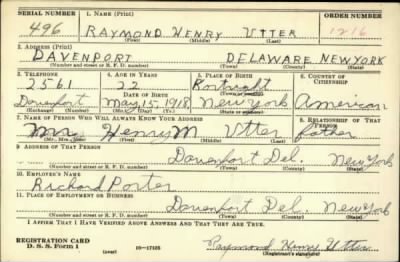 SERIAL NUMBER 1. NAME (Print) ORDER NUMBER
496 RAYMOND HENRY UTTER 1216
(First) (Middle) (Last)
2. ADDRESS (Print)
DAVENPORT DELAWARE NEW YORK
(Number and street or R. F. D. number) (Town) (County) (State)
3. TELEPHONE 4. AGE IN YEARS 5. PLACE OF BIRTH 6. COUNTRY OF CITIZENSHIP
2561 22 Kortright
DATE OF BIRTH
Davenport May 15, 1918 New York American
(Exchange) (Number) (Mo.) (Day) (Yr.) (State or country)
7. NAME OF PERSON WHO WILL ALWAYS KNOW YOUR ADDRESS 8. RELATIONSHIP OF THAT PERSON
Mr. Henry M Utter father
(Mr., Mrs., Miss) (First) (Middle) (Last)
9. ADDRESS OF THAT PERSON
Davenport Del. New York
(Number and street or R. F. D. number) (Town) (County) (State)
10. EMPLOYER'S NAME
Richard Porter
11. PLACE OF EMPLOYMENT OR BUSINESS
Davenport Del. New York
(Number and street or R. F. D. number) (Town) (County) (State)
I AFFIRM THAT I HAVE VERIFIED ABOVE ANSWERS AND THAT THEY ARE TRUE.
REGISTRATION CARD
D. S. S. Form 1 (over) 16—17105 Raymond Henry Utter
(Registrant's signature)